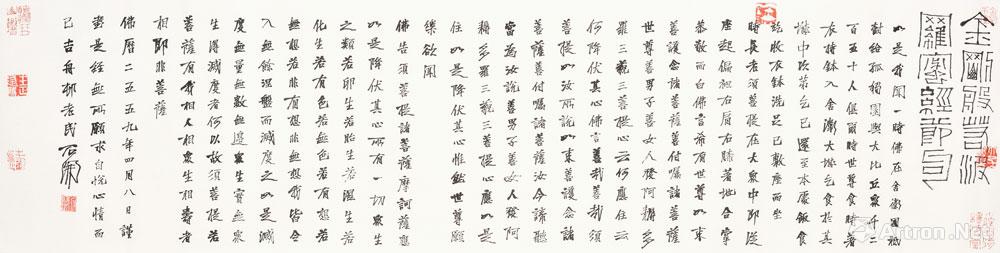 金剛般若波
羅蜜經節句
如是我聞一時佛在舍衛國祇
對給孤獨園與大比丘眾千二
百五十人俱爾時世尊食時著
衣持鉢入舍衛大城乞食於其
城中次第乞已還至本處飯食
訖收衣鉢洗足已敷座而坐
時長老須菩提在大眾中即從
座起偏袒右肩右膝著地合掌
恭敬而白佛言希有世尊如來
善護念諸菩薩善付囑諸菩薩
世尊善男子善女人發阿耨多
羅三藐三菩提心云何應住云
何降伏其心佛言善哉善哉須
菩提如汝所說如來善護念諸
菩薩善付囑諸菩薩汝今諦聽
當為汝說善男子善女人發阿
耨多羅三藐三菩提心應如是
住如是降伏其心惟然世尊願
樂欲聞
佛告須菩提諸菩薩摩訶薩應
如是降伏其心所有一切眾生
之類若卵生若胎生若濕生若
化生若有色若無色若有想若
無想若非有想非無想我皆令
入無餘涅槃而滅度之如是滅
度無量無數無邊眾生實無眾
生得滅度者何以故須菩提若
菩薩有我相人相眾生相壽者
相即非菩薩
佛曆二五五九年四月八日謹
書是經無所願求自悅心情而
已吉舟邨老民石開
Artron.Net